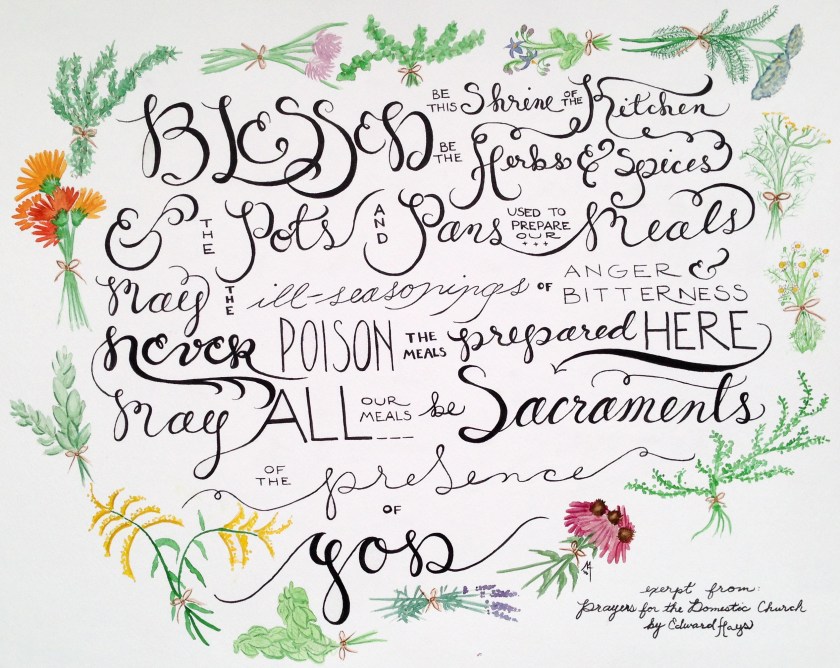 BLESSED BE THIS Shrine OF THE Kitchen
BE THE Herbs & Spices
& THE Pots AND Pans USED TO PREPARE OUR Meals
May THE ill-seasonings OF ANGER & BITTERNESS
never POISON THE MEALS prepared HERE
May ALL OUR MEALS be Sacraments
OF THE presence
OF
God
exerpt from:
Prayers for the Domestic Church
by Edward Hays